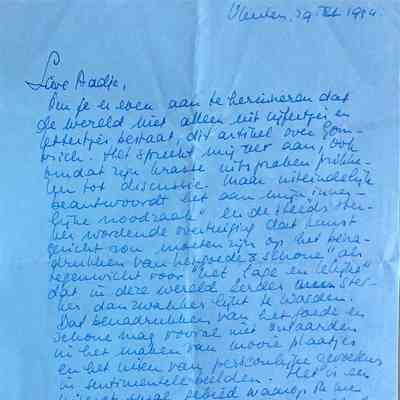 Vleuten, 29 Febr 1984.
Lieve Aadje,
Om je er even aan te herinneren dat
de wereld niet alleen uit cijfertjes en
lettertjes bestaat, dit artikel over Gom-
brich. Het spreekt mij zeer aan, ook
omdat zijn krasse uitspraken prikke-
len tot discussie. Maar uiteindelijk
beantwoordt het aan mijn "inner-
lijke noodzaak" en de steeds ster-
ker wordende overtuiging dat kunst
gericht zou moeten zijn op het bena-
drukken van het "goede & schone" als
tegenwicht voor het "lage en lelijke"
dat in deze wereld eerder ster-
ker dan zwakker lijkt te worden.
Dat benadrukken van het goede en
schone mag vooral niet ontaarden
in het maken van mooie plaatjes
en het uiten van persoonlijke gevoelens
in sentimentele beelden. Het is een
gebied waarop ik me